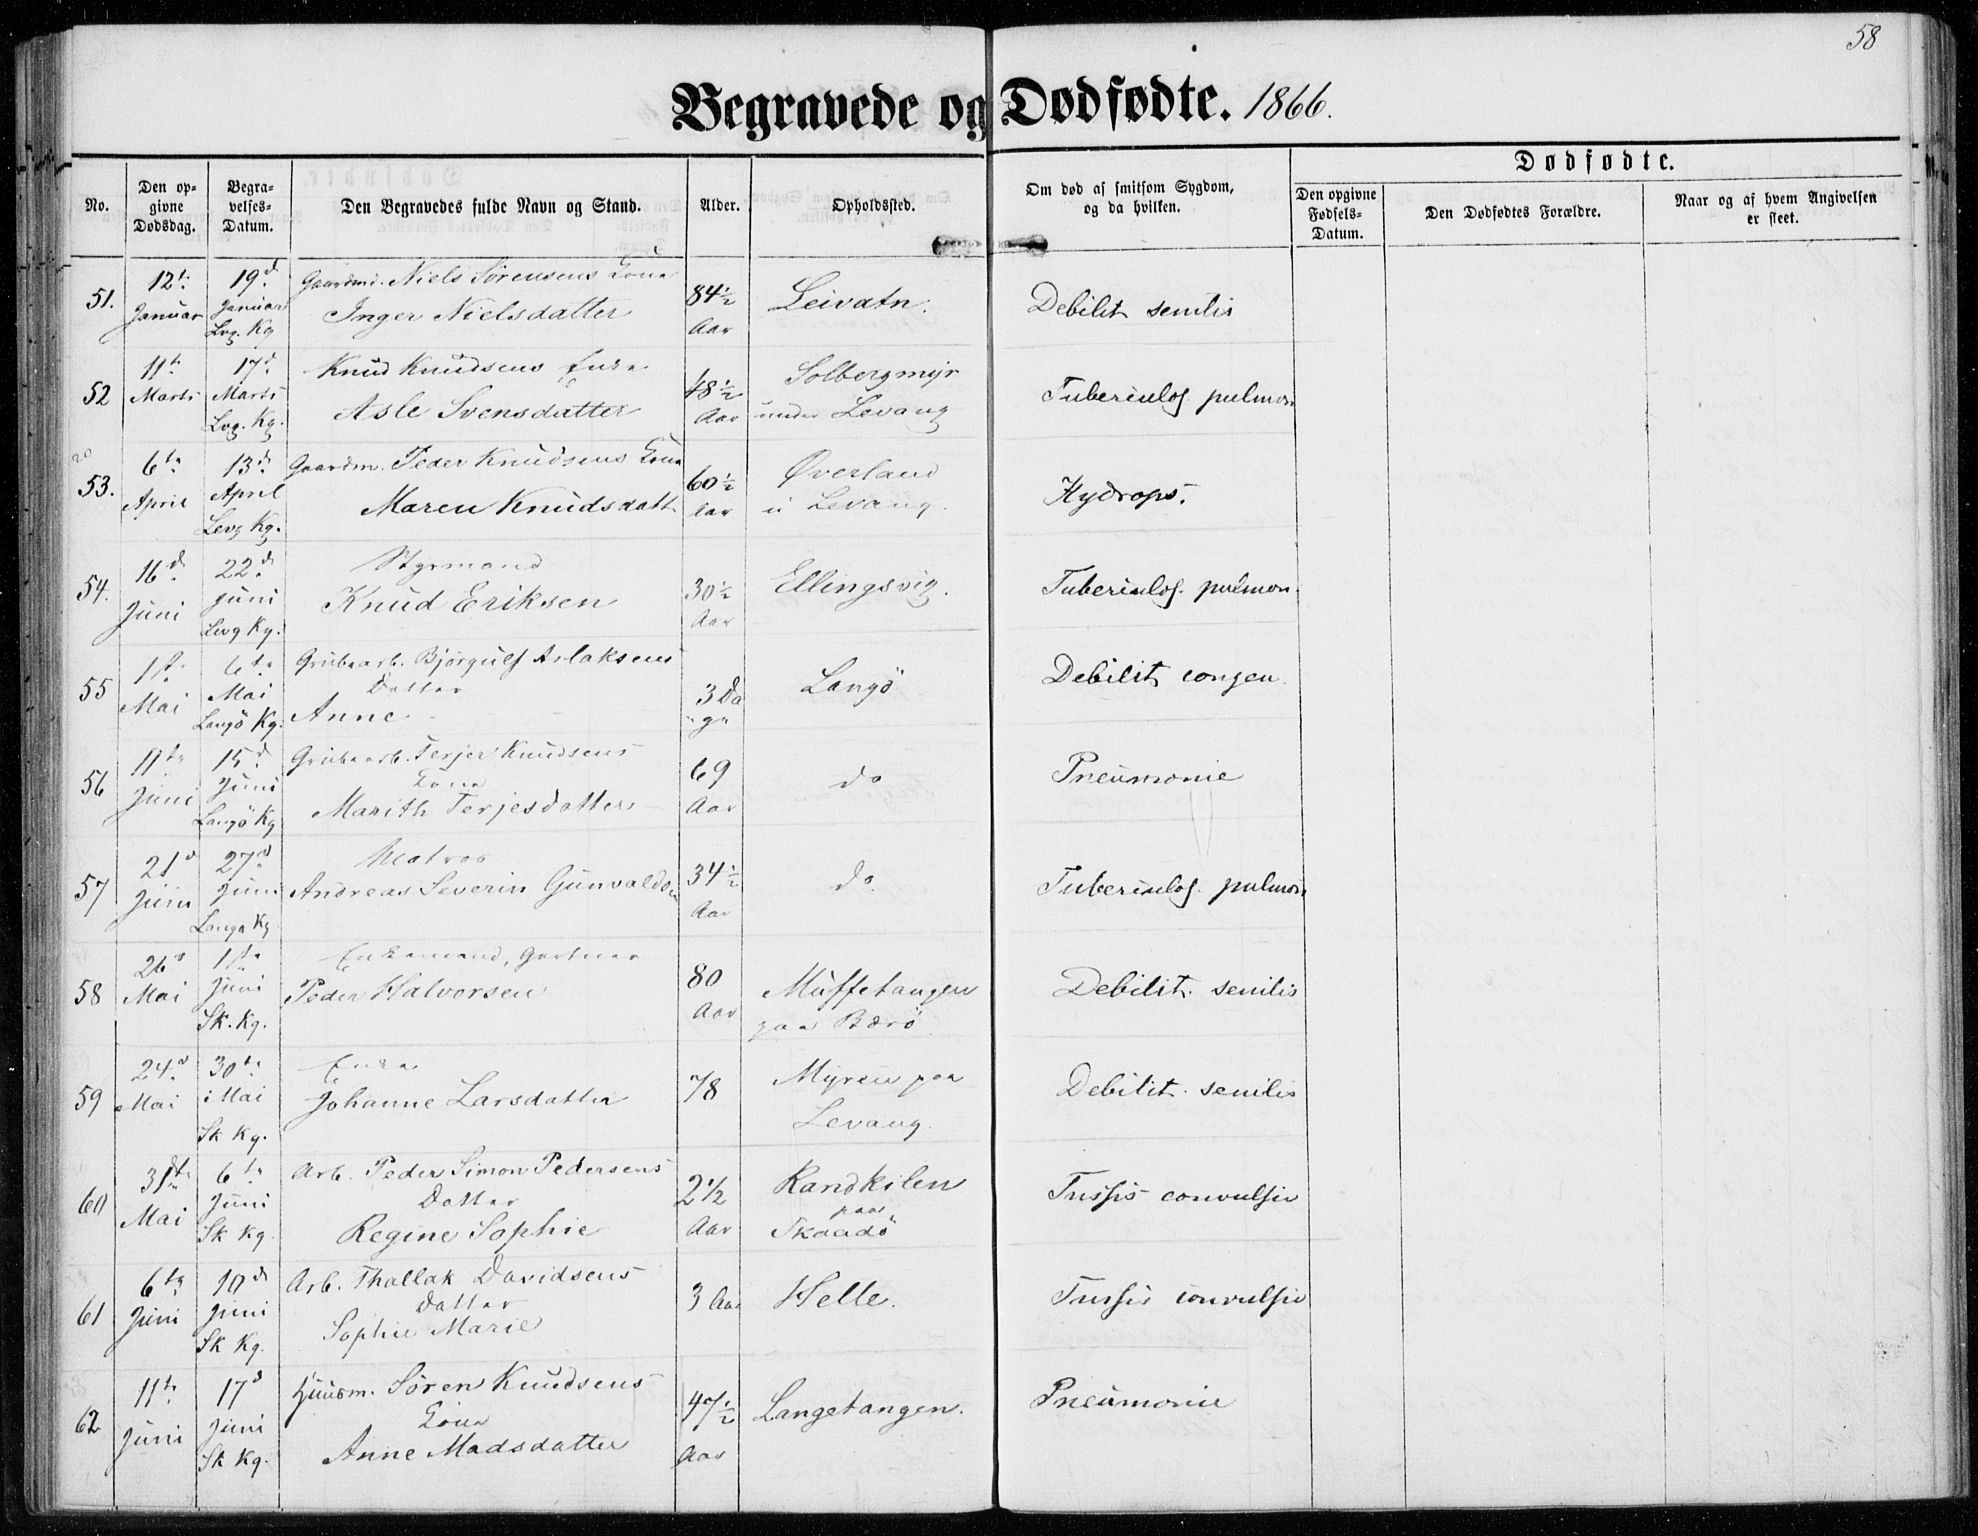 58
Begravede og Dødfødte. 1866.
No.
Den opgivne Dødsdag.
Begravelses-Datum.
Den Begravedes fulde Navn og Stand.
Alder.
Opholdssted.
Om død af smitsom Sygdom, og da hvilken.
Dødfødte.
Den opgivne Fødsels-Datum.
Den Dødfødtes Forældre.
Naar og af hvem Angivelsen er skeet.
51. 12te Januar 19d Januar Lvg. Kg Gaardmd. Niels Sørensens Kone Inger Nielsdatter 84½ Aar Leivatn. Debilit senilis
52 11te Marts 17d Marts Lvg. Kg. Knud Knudsens Enke Asle Svensdatter 48½ Aar Solbergmyr under Levang Tuberculos. pulmon
53. 6te April 13d April Levg Kg. Gaardm. Peder Knudsens Kone Maren Knudsdatt 60½ Aar Øverland i Levang. Hydrops.
54. 16d Juni 22d Juni Levg Kg. Styrmand Knud Eriksen 30½ Aar Ellingsvig. Tuberculos. pulmon.
55 1ste Mai 6te Mai Langö Kg. Grubearb. Bjørgulf Aslaksens Datter Anne 3 Dage Langö Debilit congen.
56 11te Juni 15d Juni Langö Kg Grubearb. Terjer Knudsens Kone Marith Terjesdatter 69 Aar do Pneumonie
57 21d Juni 27d Juni Langø Kg Matros Andreas Severin Gunvaldsen 34½ Aar do. Tuberculos. pulmon
58 26d Mai 1ste Juni Sk. Kg. Enkemand, Gartner Peder Halvorsen 80 Aar Müffetangen paa Barö Debilit. senilis
59 24d Mai 30te Mai Sk Kg. Enke Johanne Larsdatter 78 Myren paa Levang. Debilit. senilis
60 31te Mai 6te Juni Sk Kg Arb. Peder Simon Pedersens Datter Regine Sophie 2½ Aar Randkilen paa Skaadö Tussis convulsiv
61 6te Juni 10d Juni Sk Kg. Arb. Thallak Davidsens Datter Sophie Marie 3 Aar Helle. Tussis convulsiv
62 11te Juni 17d Juni Sk Kg. Huusm. Sören Knudsens Kone Anne Madsdatter 47½ Aar Langetangen. Pneumonie